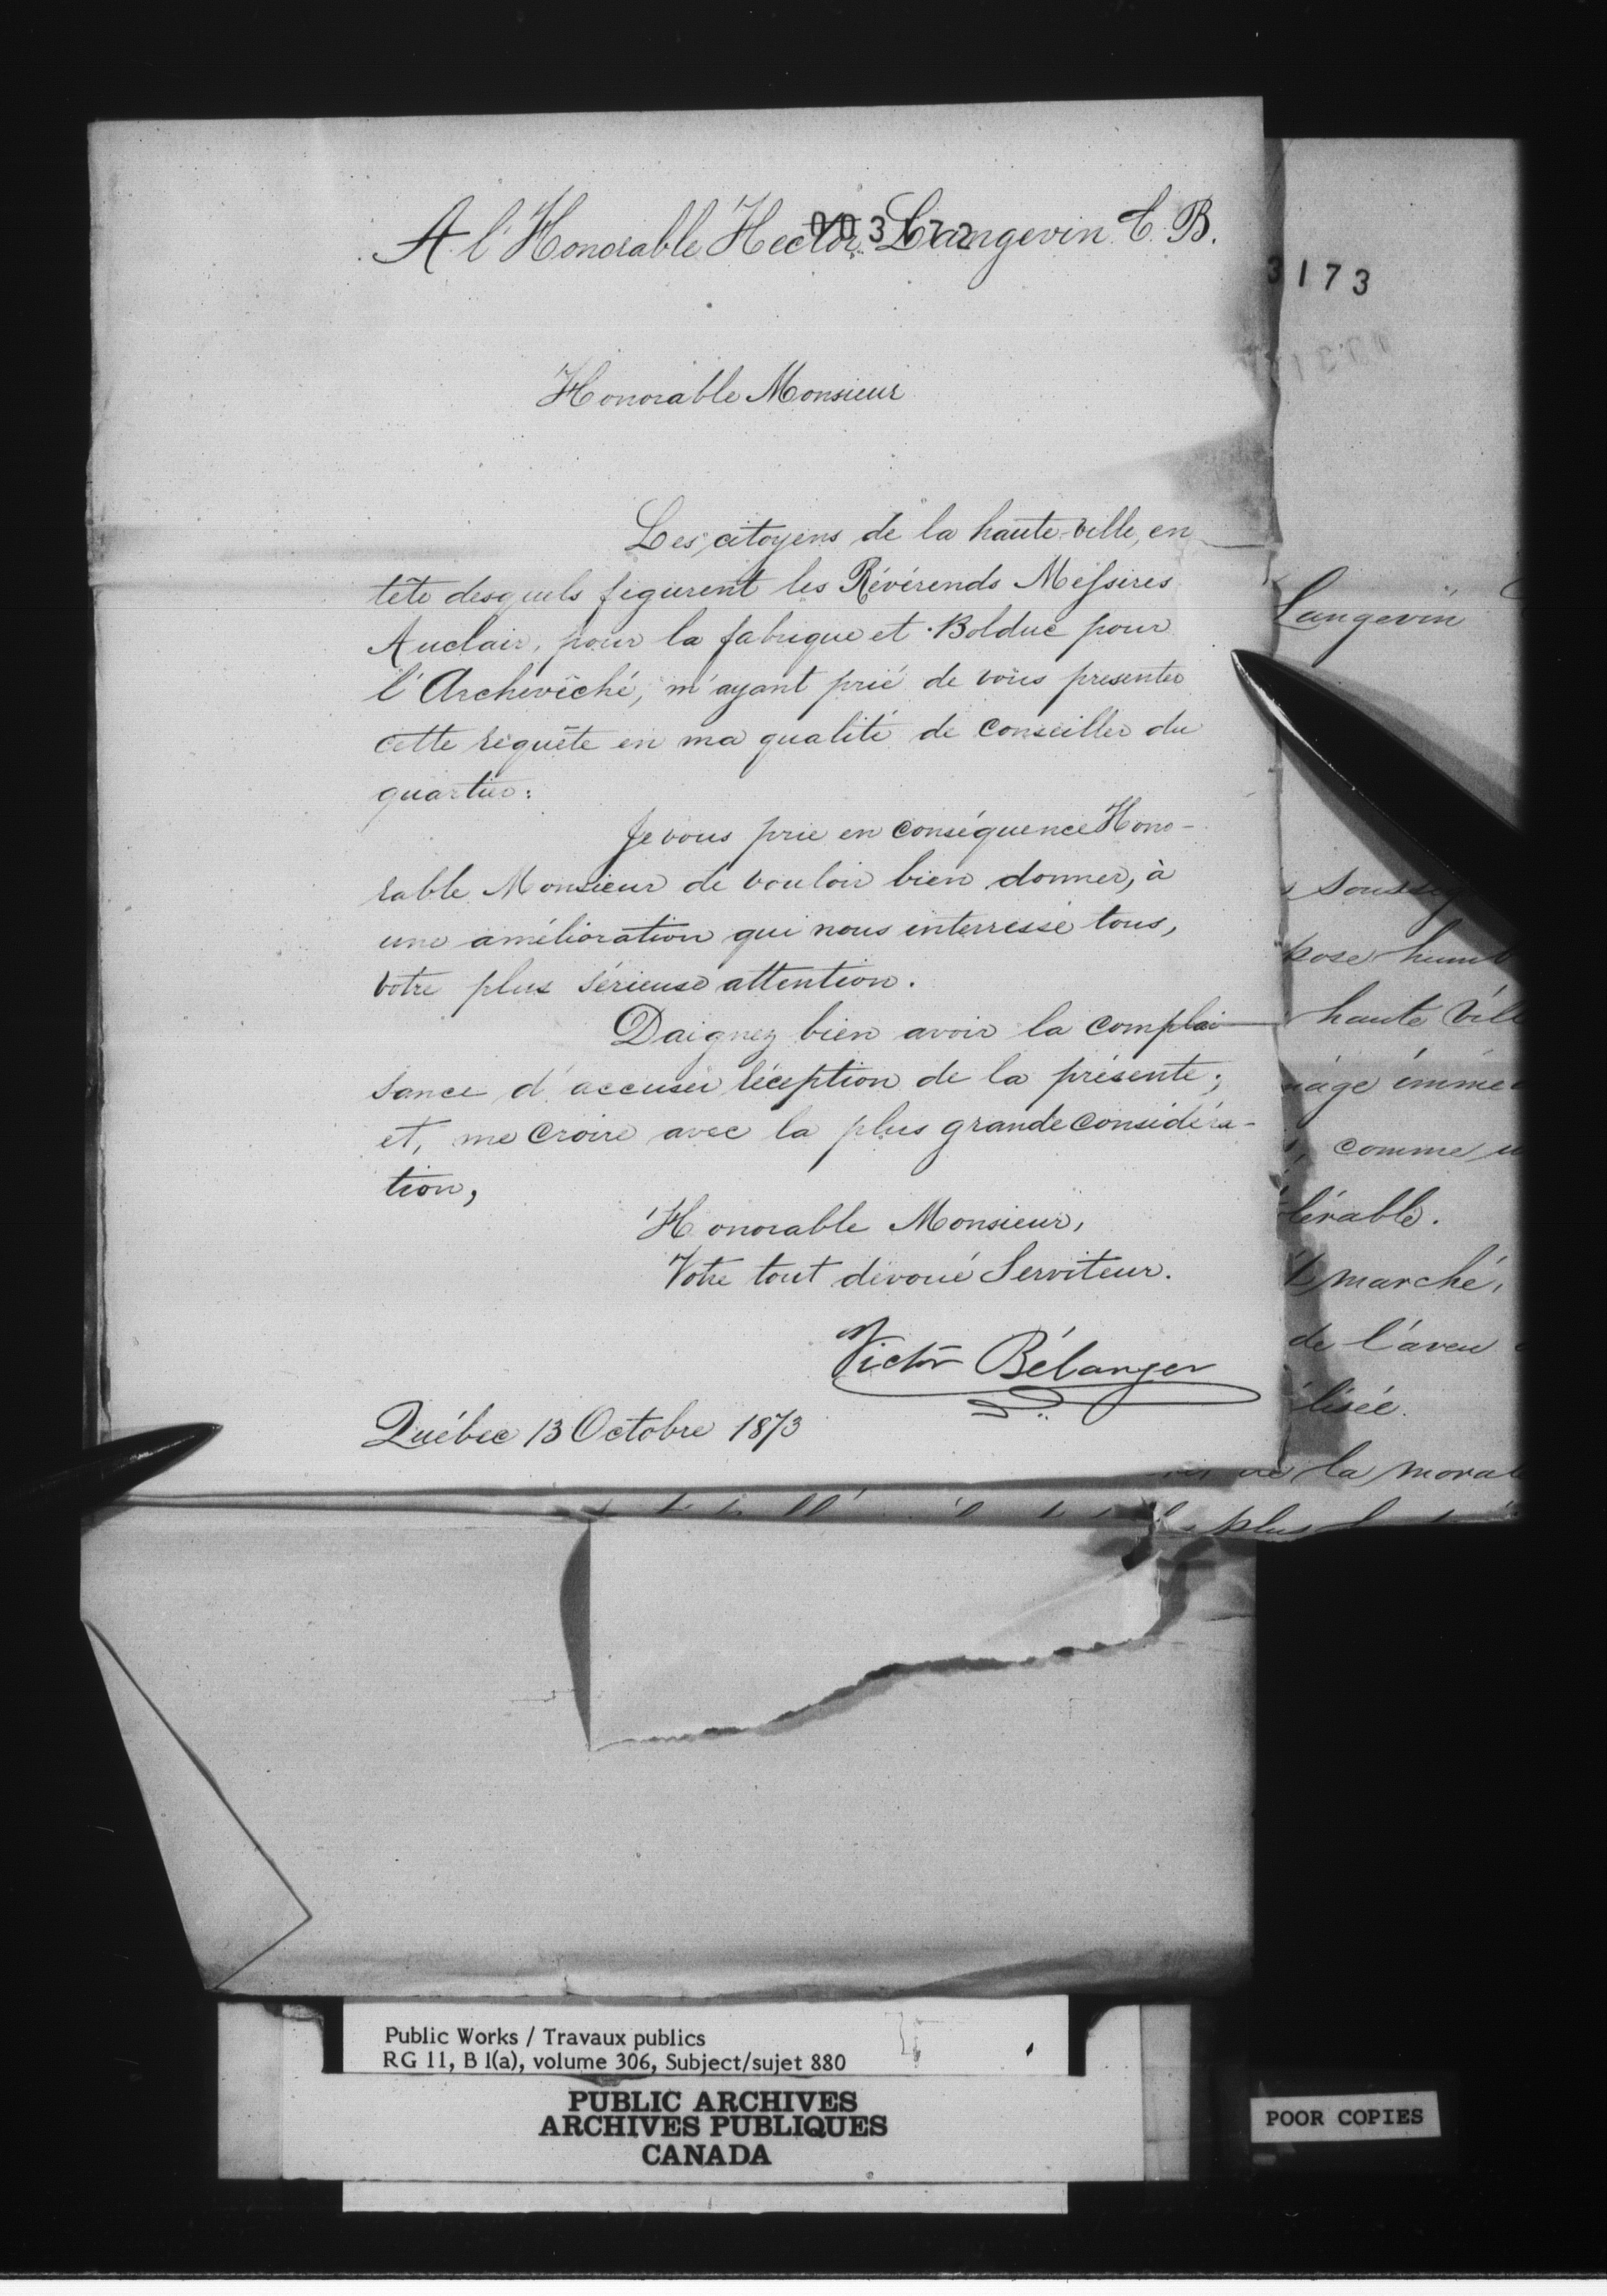 A l'Honorable Hector Langevin C. B.
003172
Honorable Monsieur
Les citoyens de la haute-ville, en
tête desquels figurent les Révérends Messires
Auclair, pour la fabrique et Bolduc pour
l'Archevêché, m'ayant prié de vous presenter
cette requête en ma qualité de Conseiller du
quartier:
Je vous prie en conséquence Hono-
rable Monsieur de vouloir bien donner, à
une amélioration qui nous interresse tous,
votre plus sérieuse attention.
Daignez bien avoir la complai-
sance d'accuser réception de la présente;
et, me croire avec la plus grande considéra-
tion,
Honorable Monsieur,
Votre tout dévoué Serviteur.
Victor Bélanger
Québec 13 Octobre 1873
3173
Langevin
haute Vill
comme
lérable.
marché,
de l'aveu
lisée.
la moral
plus
Public Works / Travaux publics
RG 11, B 1(a), volume 306, Subject/sujet 880
PUBLIC ARCHIVES
ARCHIVES PUBLIQUES
CANADA
POOR COPIES